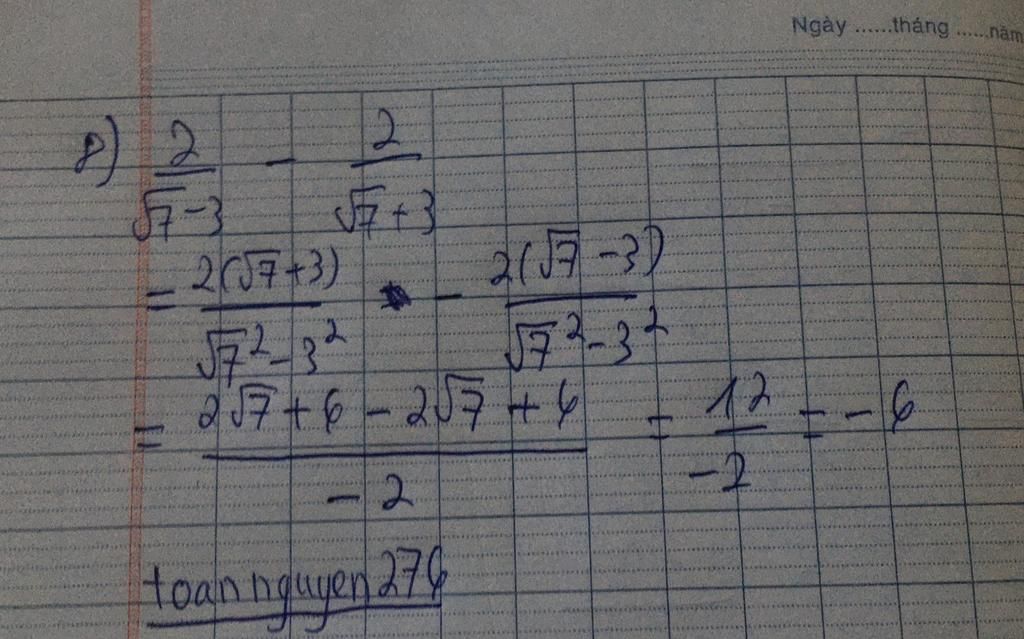 Ngày ......tháng ......năm
8) 2/(√7 - 3) - 2/(√7 + 3)
= 2(√7 + 3)/(√7² - 3²) - 2(√7 - 3)/(√7² - 3²)
= (2√7 + 6 - 2√7 + 6)/(-2) = 12/(-2) = - 6
toannguyen276